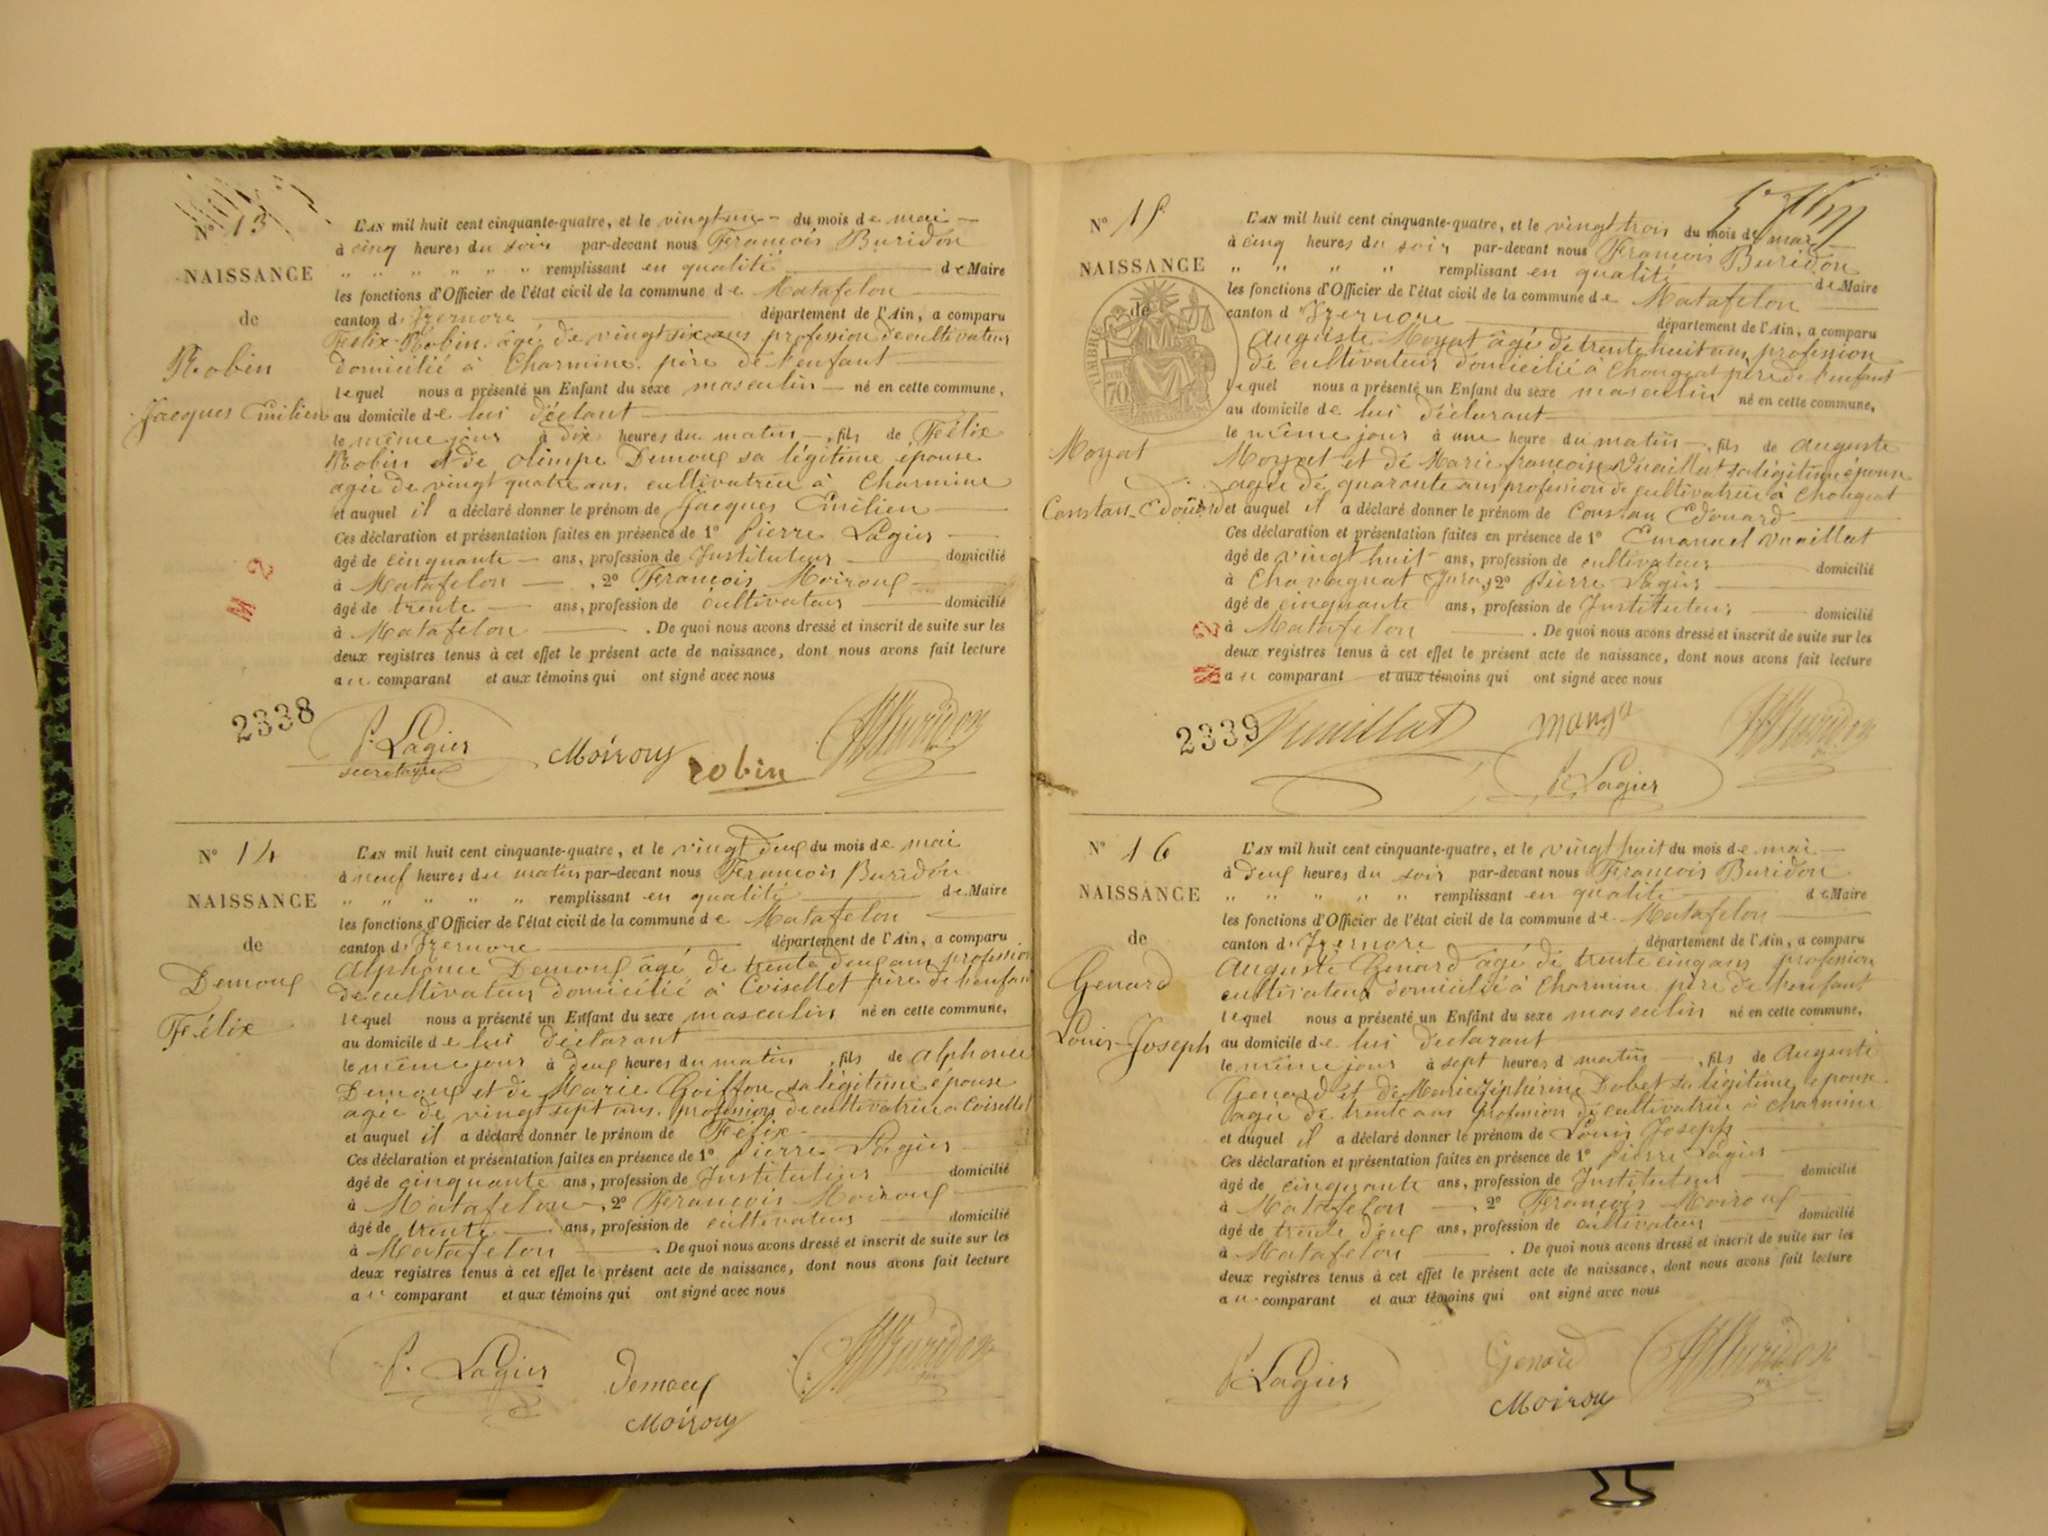 N° 13
NAISSANCE
de
Robin
Jacques Emilien
L'AN mil huit cent cinquante-quatre, et le vingt un du mois de mai
à cinq heures du soir par-devant nous François Buridon
" " " " " " remplissant en qualité de Maire
les fonctions d'Officier de l'état civil de la commune de Matafelon
canton d'Izernore département de l'Ain, a comparu
Félix Robin âgé de vingt six ans profession de cultivateur
domicilié à Charmine père de l'enfant
lequel nous a présenté un Enfant du sexe masculin né en cette commune,
au domicile de lui déclant
le même jour à dix heures du matin, fils de Félix
Robin et de Olimpe Demoux sa légitime épouse
agée de vingt quatre ans cultivatrice à Charmine
et auquel il a déclaré donner le prénom de Jacques Emilien
Ces déclaration et présentation faites en présence de 1° Pierre Lagier
âgé de cinquante ans, profession de Instituteur domicilié
à Matafelon, 2° François Moiroux
âgé de trente ans, profession de cultivateur domicilié
à Matafelon. De quoi nous avons dressé et inscrit de suite sur les
deux registres tenus à cet effet le présent acte de naissance, dont nous avons fait lecture
au comparant et aux témoins qui ont signé avec nous
M 2
2338
P. Lagier
secretaire
Moiroux
robin
Buridon
N° 14
NAISSANCE
de
Demoux
Félix
L'AN mil huit cent cinquante-quatre, et le vingt deux du mois de mai
à neuf heures du matin par-devant nous François Buridon
" " " " " remplissant en qualité de Maire
les fonctions d'Officier de l'état civil de la commune de Matafelon
canton d'Izernore département de l'Ain, a comparu
Alphonse Demoux âgé de trente deux ans profession
de cultivateur domicilié à Coisellet père de l'enfant
lequel nous a présenté un Enfant du sexe masculin né en cette commune,
au domicile de lui déclarant
le même jour à deux heures du matin, fils de Alphonse
Demoux et de Marie Goiffon sa légitime épouse
agée de vingt sept ans, profession de cultivatrice à Coisellet
et auquel il a déclaré donner le prénom de Félix
Ces déclaration et présentation faites en présence de 1° Pierre Lagier
âgé de cinquante ans, profession de Instituteur domicilié
à Matafelon, 2° François Moiroux
âgé de trente ans, profession de cultivateur domicilié
à Matafelon. De quoi nous avons dressé et inscrit de suite sur les
deux registres tenus à cet effet le présent acte de naissance, dont nous avons fait lecture
au comparant et aux témoins qui ont signé avec nous
P. Lagier
Demoux
Moiroux
Buridon
N° 15
NAISSANCE
de
TIMBRE
Moyat
Constan Edouard
L'AN mil huit cent cinquante-quatre, et le vingt trois du mois de mai
à cinq heures du soir par-devant nous François Buridon
" " " " remplissant en qualité de Maire
les fonctions d'Officier de l'état civil de la commune de Matafelon
canton d'Izernore département de l'Ain, a comparu
Auguste Moyat âgé de trente huit ans profession
de cultivateur domicilié à Chougeat père de l'enfant
lequel nous a présenté un Enfant du sexe masculin né en cette commune,
au domicile de lui déclarant
le même jour à une heure du matin, fils de Auguste
Moyat et de Marie françoise Vuaillat sa légitime épouse
agée de quarante ans profession de cultivatrice à Chougeat
et auquel il a déclaré donner le prénom de Constan Edouard
Ces déclaration et présentation faites en présence de 1° Emanuel Vuaillat
âgé de vingt huit ans, profession de cultivateur domicilié
à Chavagnat Jura, 2° Pierre Lagier
âgé de cinquante ans, profession de Instituteur domicilié
à Matafelon. De quoi nous avons dressé et inscrit de suite sur les
deux registres tenus à cet effet le présent acte de naissance, dont nous avons fait lecture
au comparant et aux témoins qui ont signé avec nous
M 2
2339
Vuaillat
P. Lagier
Buridon
N° 16
NAISSANCE
de
Genard
Louis Joseph
L'AN mil huit cent cinquante-quatre, et le vingt huit du mois de mai
à deux heures du soir par-devant nous François Buridon
" " " " " remplissant en qualité de Maire
les fonctions d'Officier de l'état civil de la commune de Matafelon
canton d'Izernore département de l'Ain, a comparu
Auguste Genard âgé de trente cinq ans profession
cultivateur domicilié à Charmine père de l'enfant
lequel nous a présenté un Enfant du sexe masculin né en cette commune,
au domicile de lui déclarant
le même jour à sept heures d matin, fils de Auguste
Genard et de Marie Zéphérine Bobet sa légitime épouse
agée de trente ans profession de cultivatrice à Charmine
et auquel il a déclaré donner le prénom de Louis Joseph
Ces déclaration et présentation faites en présence de 1° Pierre Lagier
âgé de cinquante ans, profession de Instituteur domicilié
à Matafelon, 2° François Moiroux
âgé de trente deux ans, profession de cultivateur domicilié
à Matafelon. De quoi nous avons dressé et inscrit de suite sur les
deux registres tenus à cet effet le présent acte de naissance, dont nous avons fait lecture
au comparant et aux témoins qui ont signé avec nous
P. Lagier
Genard
Moiroux
Buridon